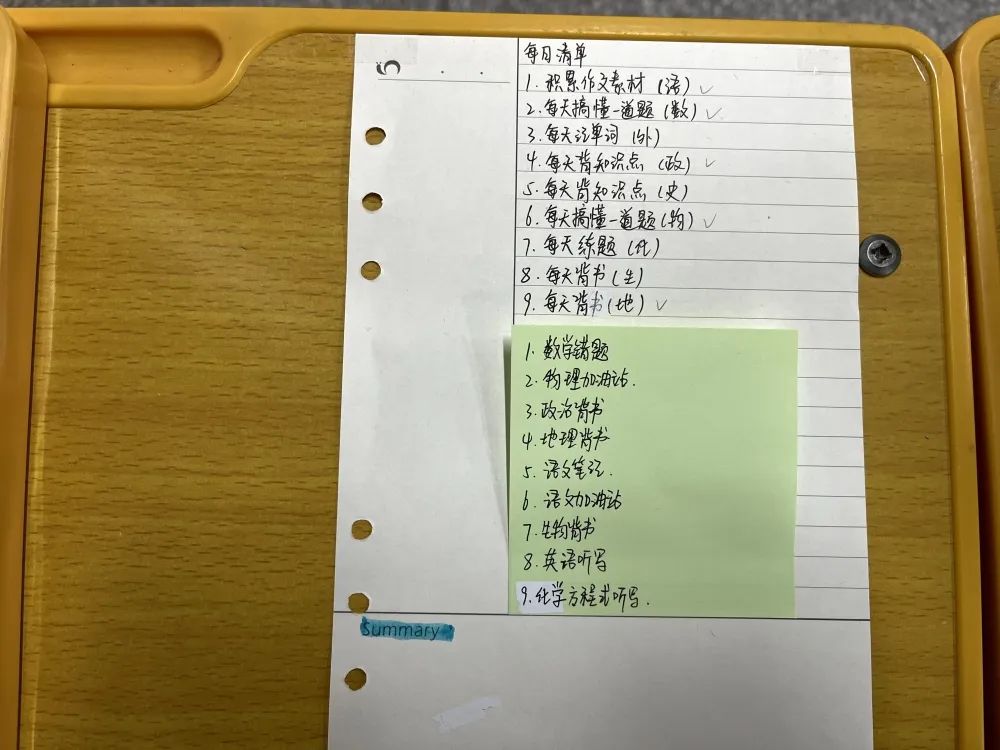 5
每日清单
1. 积累作文素材 (语) ✓
2. 每天搞懂一道题 (数) ✓
3. 每天记单词 (外)
4. 每天背知识点 (政) ✓
5. 每天背知识点 (史)
6. 每天搞懂一道题 (物) ✓
7. 每天练题 (化)
8. 每天背书 (生)
9. 每天背书 (地) ✓
1. 数学错题
2. 物理加油站.
3. 政治背书
4. 地理背书
5. 语文笔记.
6. 语文加油站
7. 生物背书
8. 英语听写
9. 化学方程式听写.
Summary